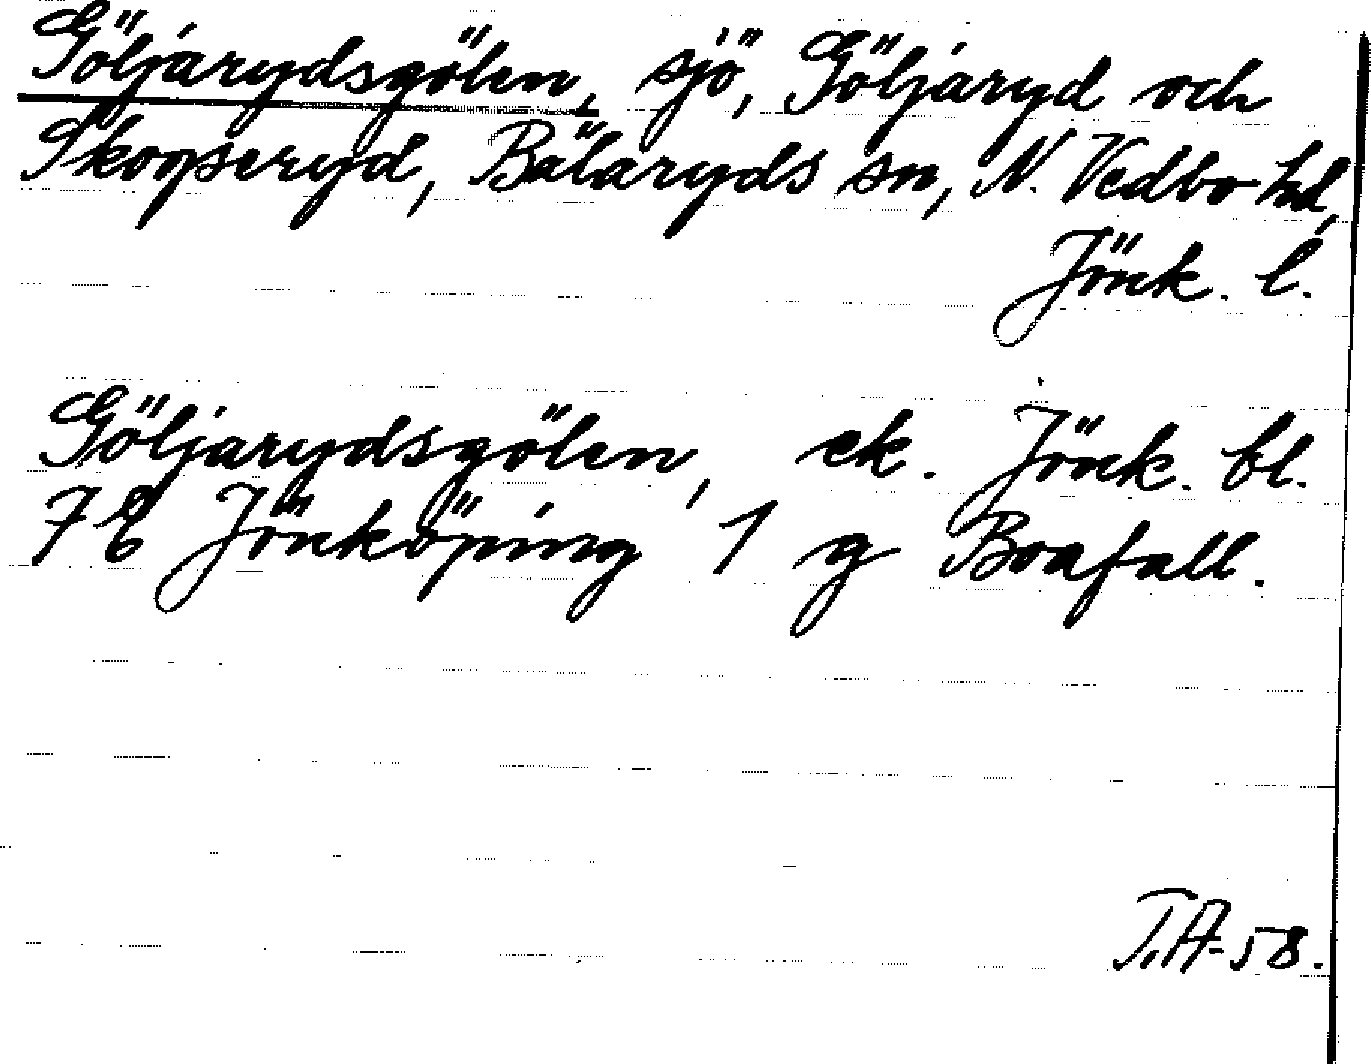 Göljarydsgölen, sjö, Göljaryd och
Skogseryd, Bälaryds sn, N. Vedbo hd,
Jönk. l.
Göljarydsgölen, ek. Jönk. bl.
7E Jönköping 1 g Boafall.
T.A-58.